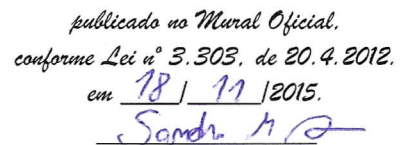 publicado no Mural Oficial,
conforme Lei nº 3.303, de 20.4.2012.
em 18 / 11 /2015.